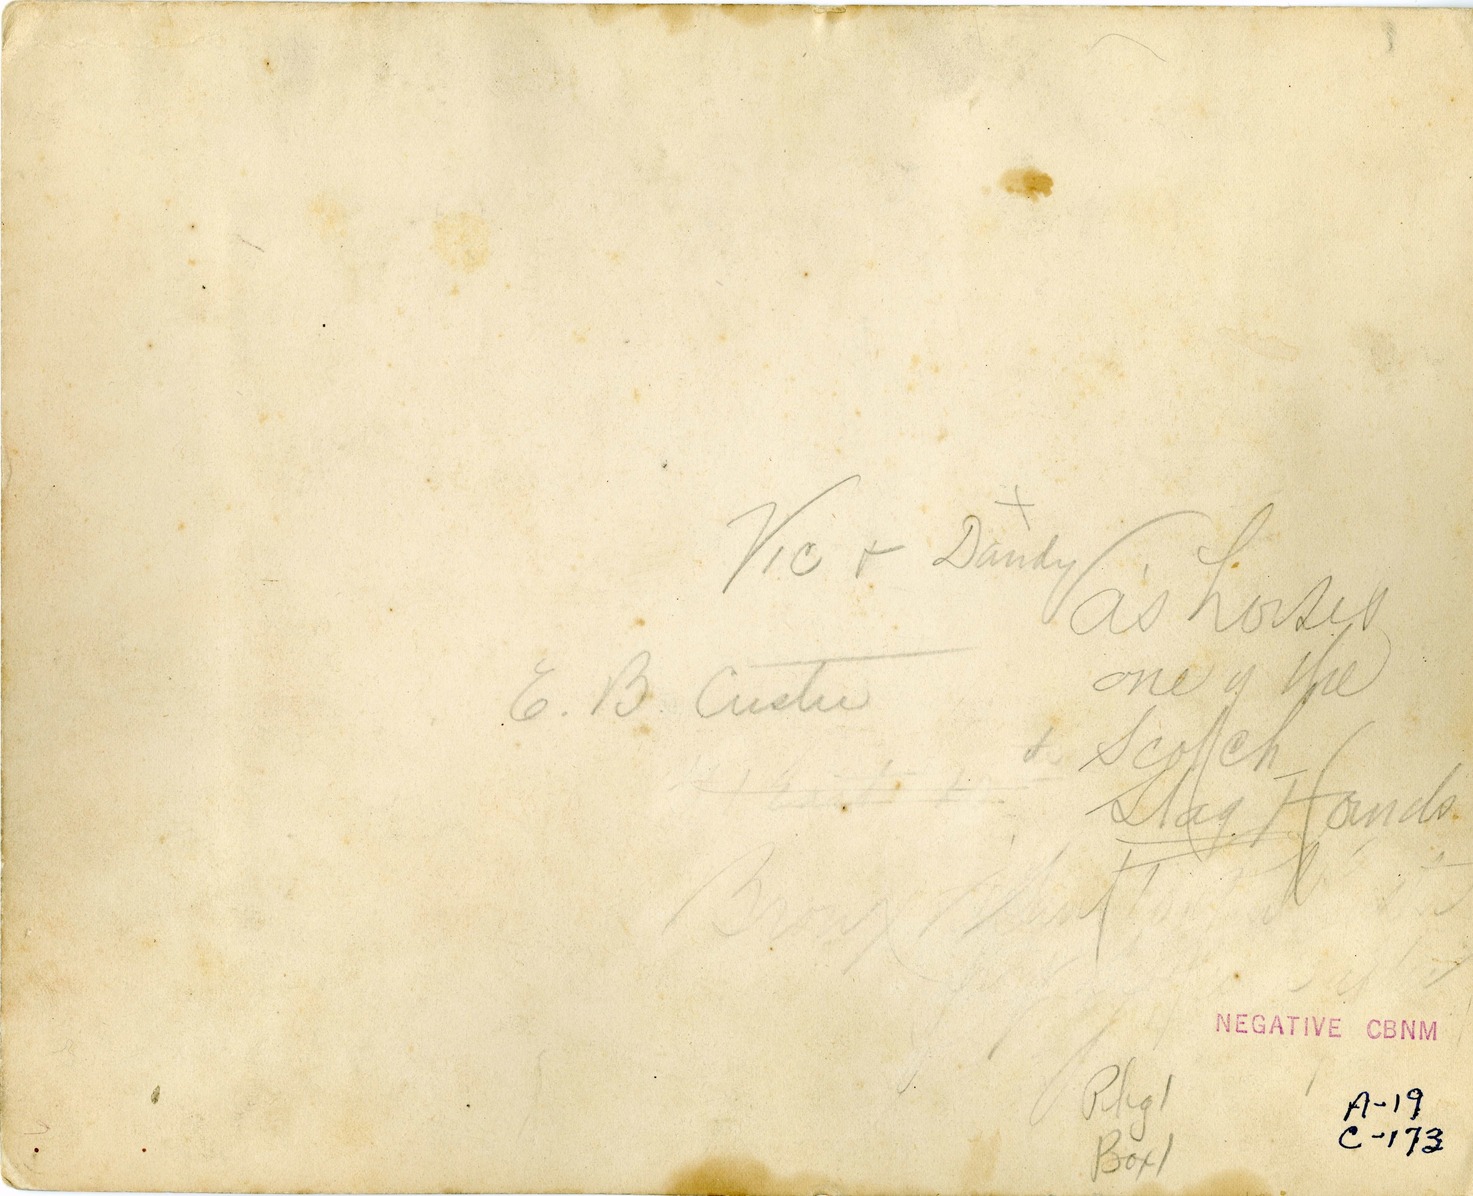 Vic + Dandy
as horses
one of the
E. B. Custer
+ Scotch
Stag Hounds
Bronx
NEGATIVE CBNM
Pkg 1
Box 1
A-19
C-173